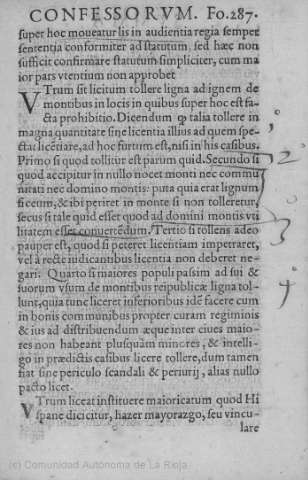 CONFESSORVM. Fo.287.
super hoc moueatur lis in audientia regia semper
sententia conformiter ad statutum sed hæc non
sufficit confirmare statutum simpliciter, cum ma
ior pars vtentium non approbet
VTrum sit licitum tollere ligna ad ignem de
montibus in locis in quibus super hoc est fa-
cta prohibitio. Dicendum ꝙ talia tollere in
magna quantitate sine licentia illius ad quem spe-
ctat licẽtiare, ad hoc furtum est, nisi in his casibus.
Primo si quod tollitur est parum quid. Secundo si
quod accipitur in nullo nocet monti nec commu
nitati nec domino montis: puta quia erat lignum
siccum, & ibi periret in monte si non tolleretur,
secus si tale quid esset quod ad domini montis vti
litatem esset conuertẽdum. Tertio si tollens adeo
pauper est, quod si peteret licentiam impetraret,
vel à recte iudicantibus licentia non deberet ne-
gari: Quatto si maiores populi passim ad sui &
suorum vsum de montibus reipublicæ ligna tol-
lunt, quia tunc liceret inferioribus idẽ facere cum
in bonis communibus propter curam regiminis
& ius ad distribuendum æque inter ciues maio-
res non habeant plusquàm minores, & intelli-
go in prædictis casibus licere tollere, dum tamen
fiat sine periculo scandali & periurij, alias nullo
pacto licet.
VTrum liceat instituere maioricatum quod Hi
spane dicicitur, hazer mayorazgo, seu vincu-
lare
1
2
3
4
(c) Comunidad Autónoma de La Rioja